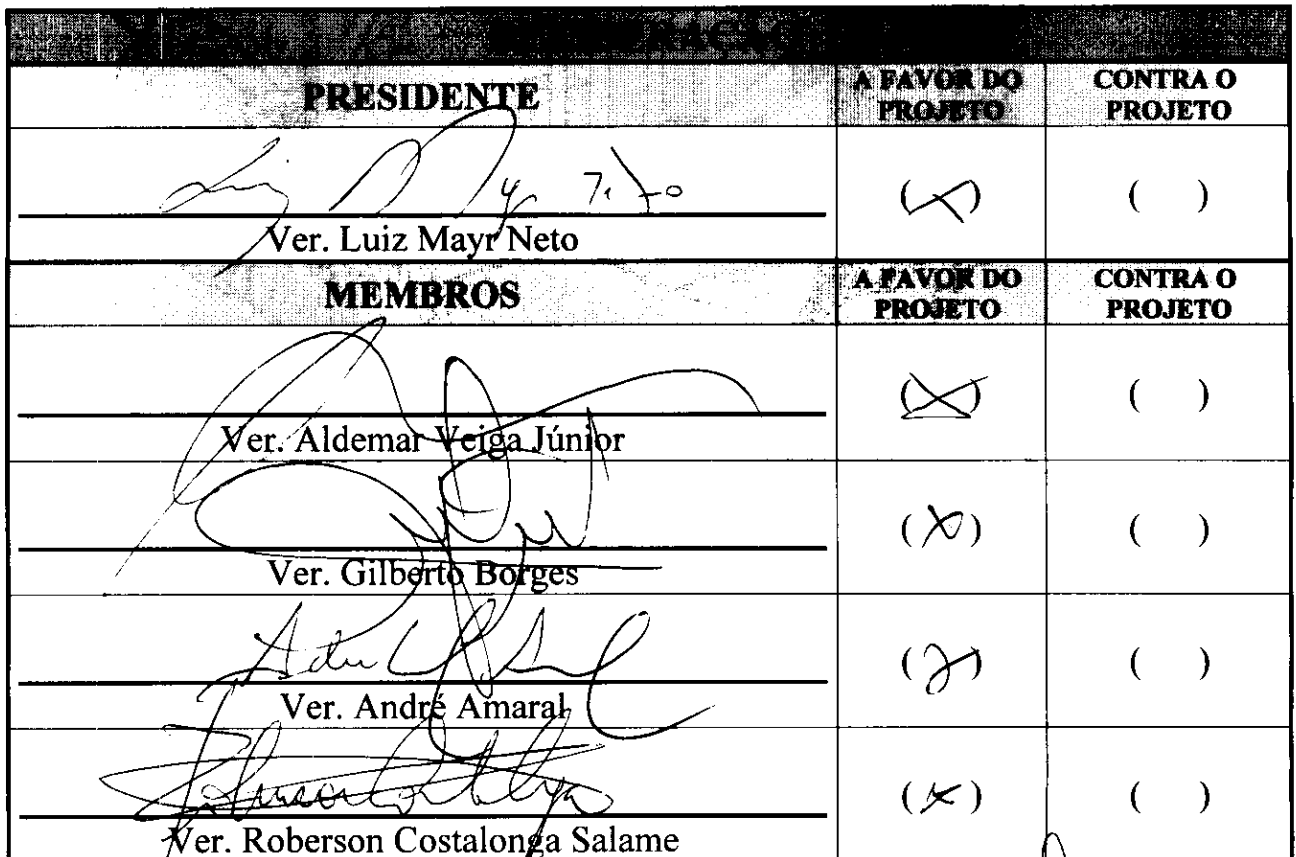 PRESIDENTE
A FAVOR DO PROJETO
CONTRA O PROJETO
( X )
(   )
Ver. Luiz Mayr Neto
MEMBROS
A FAVOR DO PROJETO
CONTRA O PROJETO
( X )
(   )
Ver. Aldemar Veiga Júnior
( X )
(   )
Ver. Gilberto Borges
( X )
(   )
Ver. André Amaral
( X )
(   )
Ver. Roberson Costalonga Salame